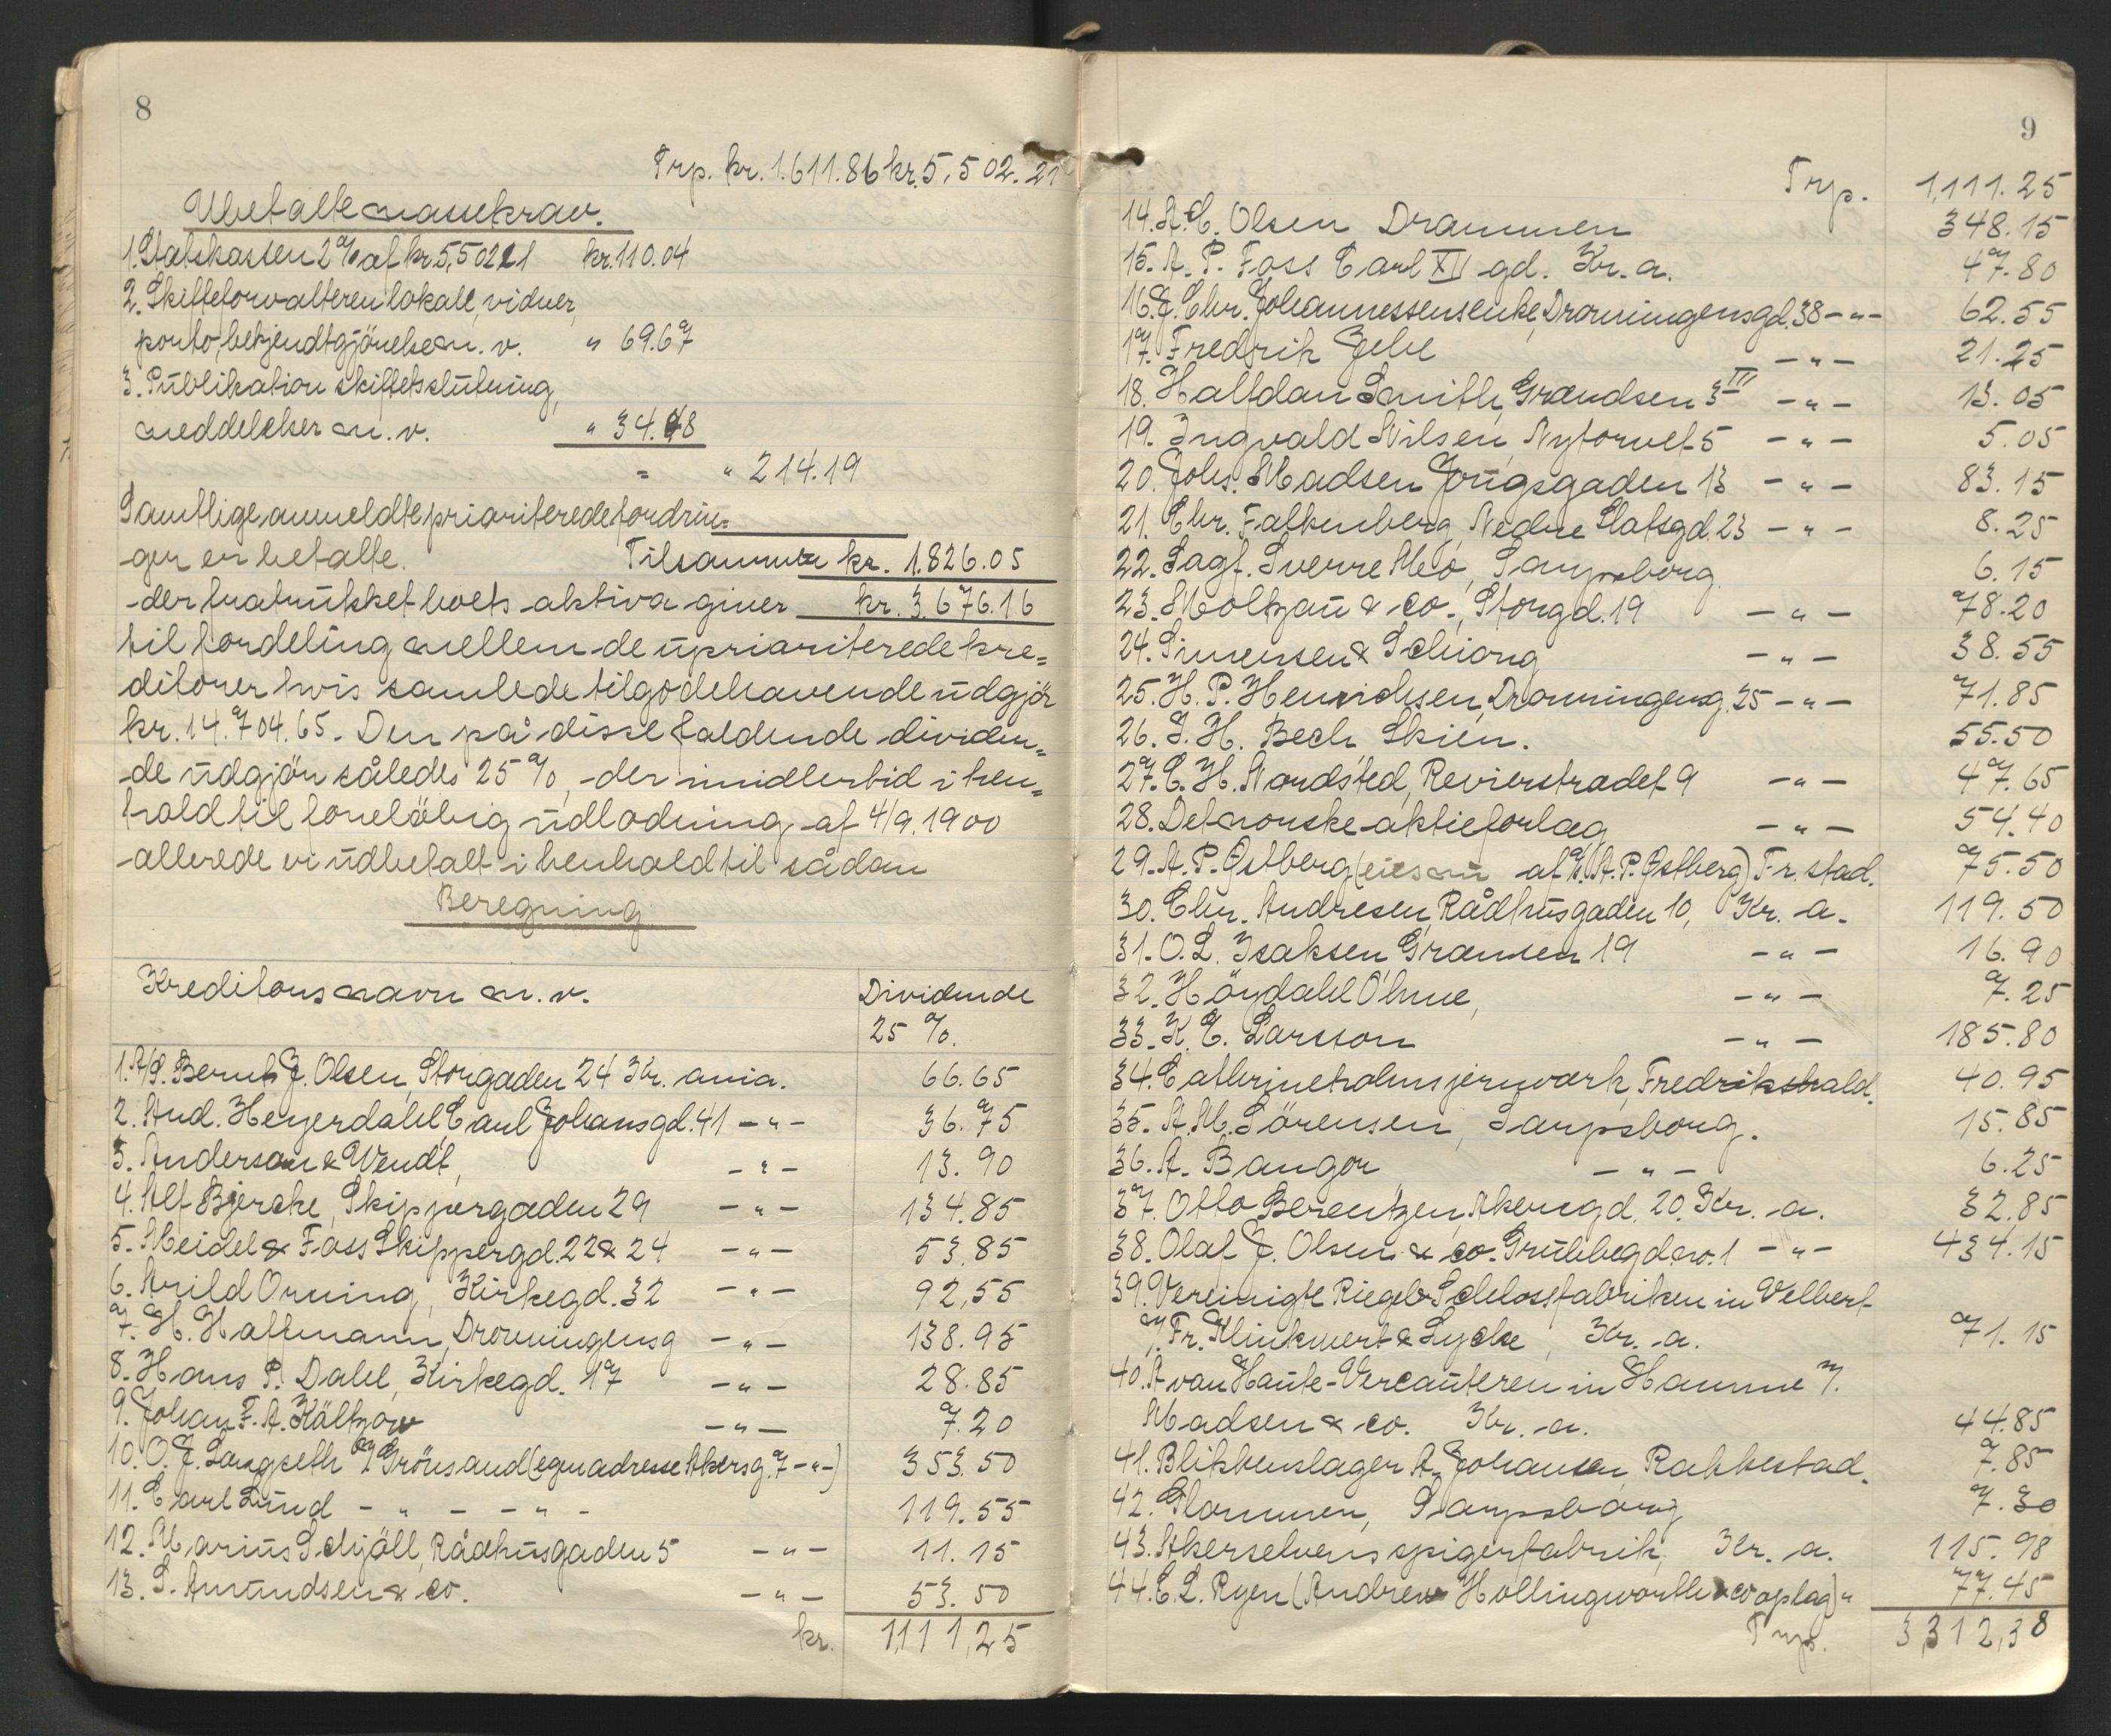 8
Trp. kr. 1.611.86 kr. 5,502.21
Ubetalte massekrav.
1. Statskassen 2% af kr 5,502.21 kr. 110.04
2. Skifteforvalteren lokale, vidner,
porto, bekjendtgjörelse m. v. " 69.67
3. Publikation skiftets slutning,
meddelelser m. v. " 34.48
= " 214.19
Samtlige anmeldte prioriterede fordrin=
ger er betalte. Tilsammen kr. 1.826.05
der fratrukket boets aktiva giver kr. 3.676.16
til fordeling mellem de uprioriterede kre=
ditorer hvis samlede tilgodehavende udgjör
kr. 14.704.65. Den på disse faldende dividen=
de udgjör således 25%, der imidlertid i hen=
hold til foreløbig udlodning af 4/9. 1900
allerede er udbetalt i henhold til sådan
Beregning
Kreditors navn m. v. Dividende
25 %.
1. A/S. Bernh. J. Olsen, Storgaden 24 Kr. ania. 66.65
2. And. Heyerdahl Carl Johansgd. 41 - " - 36.75
3. Anderson & Wendt, - " - 13.90
4. Alf Bjercke, Skippergaden 29 - " - 134.85
5. Meidel & Foss Skippergd. 22 & 24 - " - 53.85
6. Arild Orning, Kirkegd. 32 - " - 92,55
7. H. Haffmann, Dronningensg - " - 138.95
8. Hans P. Dahl, Kirkegd. 17 - " - 28.85
9. Johan F. A. Költzow - " - 7.20
10. O. J. Langseth Grönsand (egen adresse Akersg. 7 - " -) 353.50
11. Carl Lund - " - - " - 119.55
12. Marius Schjöll, Rådhusgaden 5 - " - 11.15
13. S. Amundsen & co. - " - 53.50
kr. 1,111,25
9
Trp. 1,111.25
14. A. C. Olsen Drammen 348.15
15. A. P. Foss Carl XII gd. Kr. a. 47.80
16. J. Chr. Johannessens enke, Dronningensgd. 38 - " - 62.55
17. Fredrik Jebe - " - 21.25
18. Halfdan Smith, Grændsen 3 III - " - 13.05
19. Ingvald Nilsen, Nytorvet 5 - " - 5.05
20. Johs. Madsen Youngsgaden 13 - " - 83.15
21. Chr. Falkenberg, Nedre Slotsgd. 23 - " - 8.25
22. Sagf. Sverre Mo, Sarpsborg 6.15
23. Moltzau & co., Storgd. 19 - " - 78.20
24. Simensen & Schiong - " - 38.55
25. H. P. Henrichsen, Dronningensg. 25 - " - 71.85
26. J. H. Bech, Skien. 55.50
27. C. H. Nordsted, Revierstrædet 9 - " - 47.65
28. Det norske aktieforlag - " - 54.40
29. A. P. Østberg (eies nu af A. P. Østberg) Fr. stad. 75.50
30. Chr. Andresen, Rådhusgaden 10, Kr. a. 119.50
31. O. L. Isaksen Grænsen 19 - " - 16.90
32. Höydahl Ohme, - " - 7.25
33. K. E. Larsson - " - 185.80
34. Cathrineholms jernværk, Fredrikshald. 40.95
35. A. M. Sörensen, Sarpsborg. 15.85
36. A. Bangor - " - 6.25
37. Otto Berentzen, Akersgd. 20. Kr. a. 32.85
38. Olaf J. Olsen & co. Grubbegd. no. 1 - " - 434.15
39. Vereinigte Riegel & Schlossfabriken in Velbert
v. Fr. Klinkwert & Lycke, Kr. a. 71.15
40. A van Haute-Vercauteren in Hamme v.
Madsen & co. Kr. a. 44.85
41. Blikkenslager A. Johansen, Rakkestad. 7.85
42. Glommen, Sarpsborg 7.30
43. Akerselvens spigerfabrik, Kr. a. 115.98
44. C. L. Ryen (Andrew Hollingworth & co oplag) " 77.45
Trp. 3,312,38